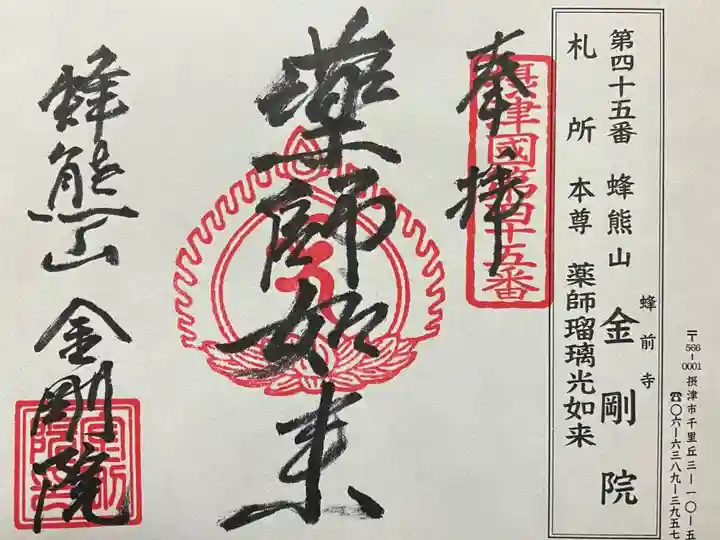 〒566-0001 摂津市千里丘三-一〇-五
☎〇六-六三八九-三九五七
第四十五番 蜂熊山 蜂前寺 金剛院
札所 本尊 薬師瑠璃光如来
奉拝
摂津國第四十五番
薬師如来
蜂熊山 金剛院